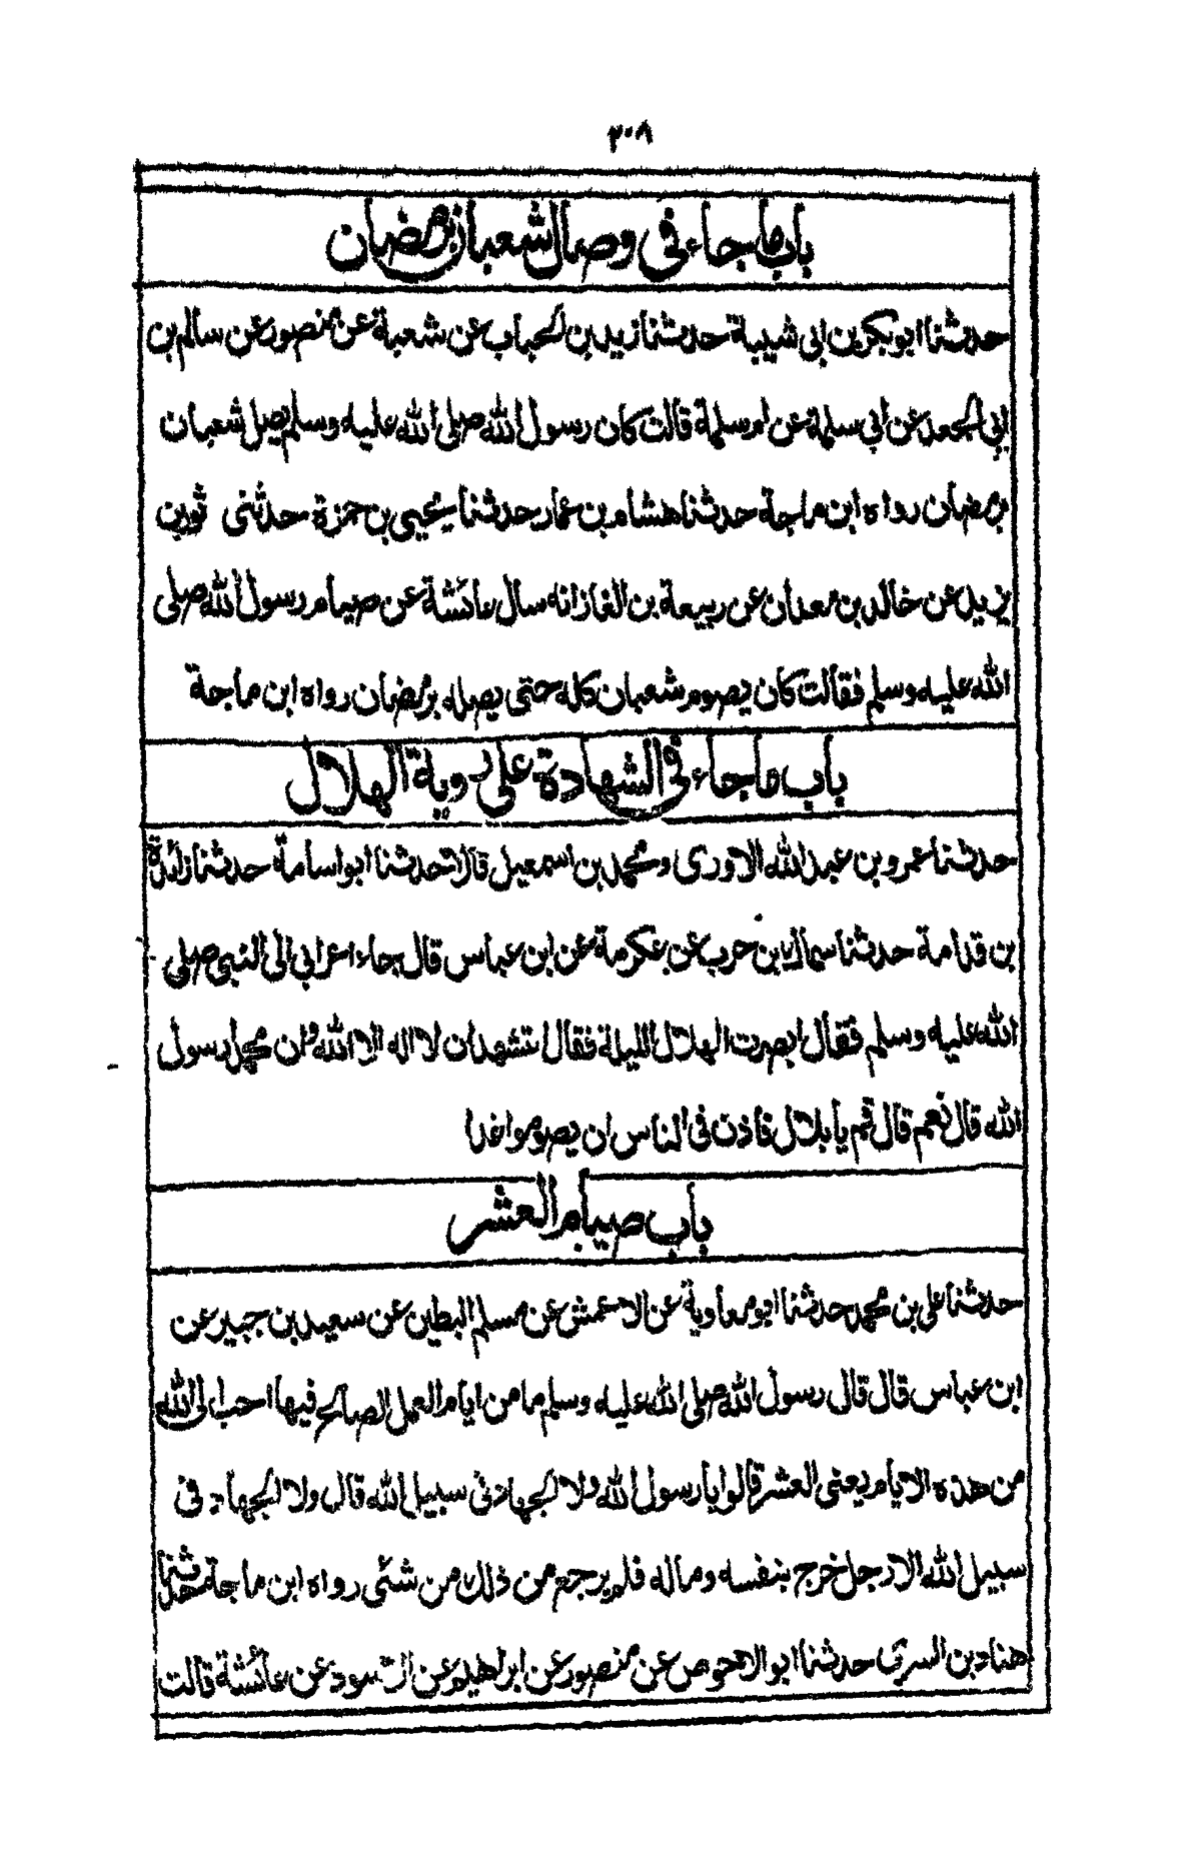 ٢٠٨
باب ما جاء في وصال شعبان برمضان
حدثنا ابو بكر بن ابى شيبة حدثنا زيد بن الحباب عن شعبة عن منصور عن سالم بن
ابى الجعد عن ابي سلمة عن ام سلمة قالت كان رسول الله صلى الله عليه وسلم يصل شعبان
برمضان رواه ابن ماجة حدثنا هشام بن عمار حدثنا يحيى بن حمزة حدثنى ثور بن
يزيد عن خالد بن معدان عن ربيعة بن الغاز انه سأل عائشة عن صيام رسول الله صلى
الله عليه وسلم فقالت كان يصوم شعبان كله حتى يصله برمضان رواه ابن ماجة
باب ما جاء في الشهادة على روية الهلال
حدثنا عمرو بن عبد الله الاودى ومحمد بن اسمعيل قالا حدثنا ابو اسامة حدثنا زائدة
بن قدامة حدثنا سماك بن حرب عن عكرمة عن ابن عباس قال جاء اعرابي الى النبي صلى
الله عليه وسلم فقال ابصرت الهلال الليلة فقال اتشهد ان لا اله الا الله وان محمدا رسول
الله قال نعم قال قم يا بلال فاذن فى الناس ان يصوموا غدا
باب صيام العشر
حدثنا على بن محمد حدثنا ابو معاوية عن الاعمش عن مسلم البطين عن سعيد بن جبير عن
ابن عباس قال قال رسول الله صلى الله عليه وسلم ما من ايام العمل الصالح فيها احب الى الله
من هذه الايام يعنى العشر قالوا يا رسول الله ولا الجهاد في سبيل الله قال ولا الجهاد فى
سبيل الله الا رجل خرج بنفسه وماله فلم يرجع من ذلك من شئ رواه ابن ماجة حدثنا
هناد بن السرى حدثنا ابو الاحوص عن منصور عن ابراهيم عن الاسود عن عائشة قالت